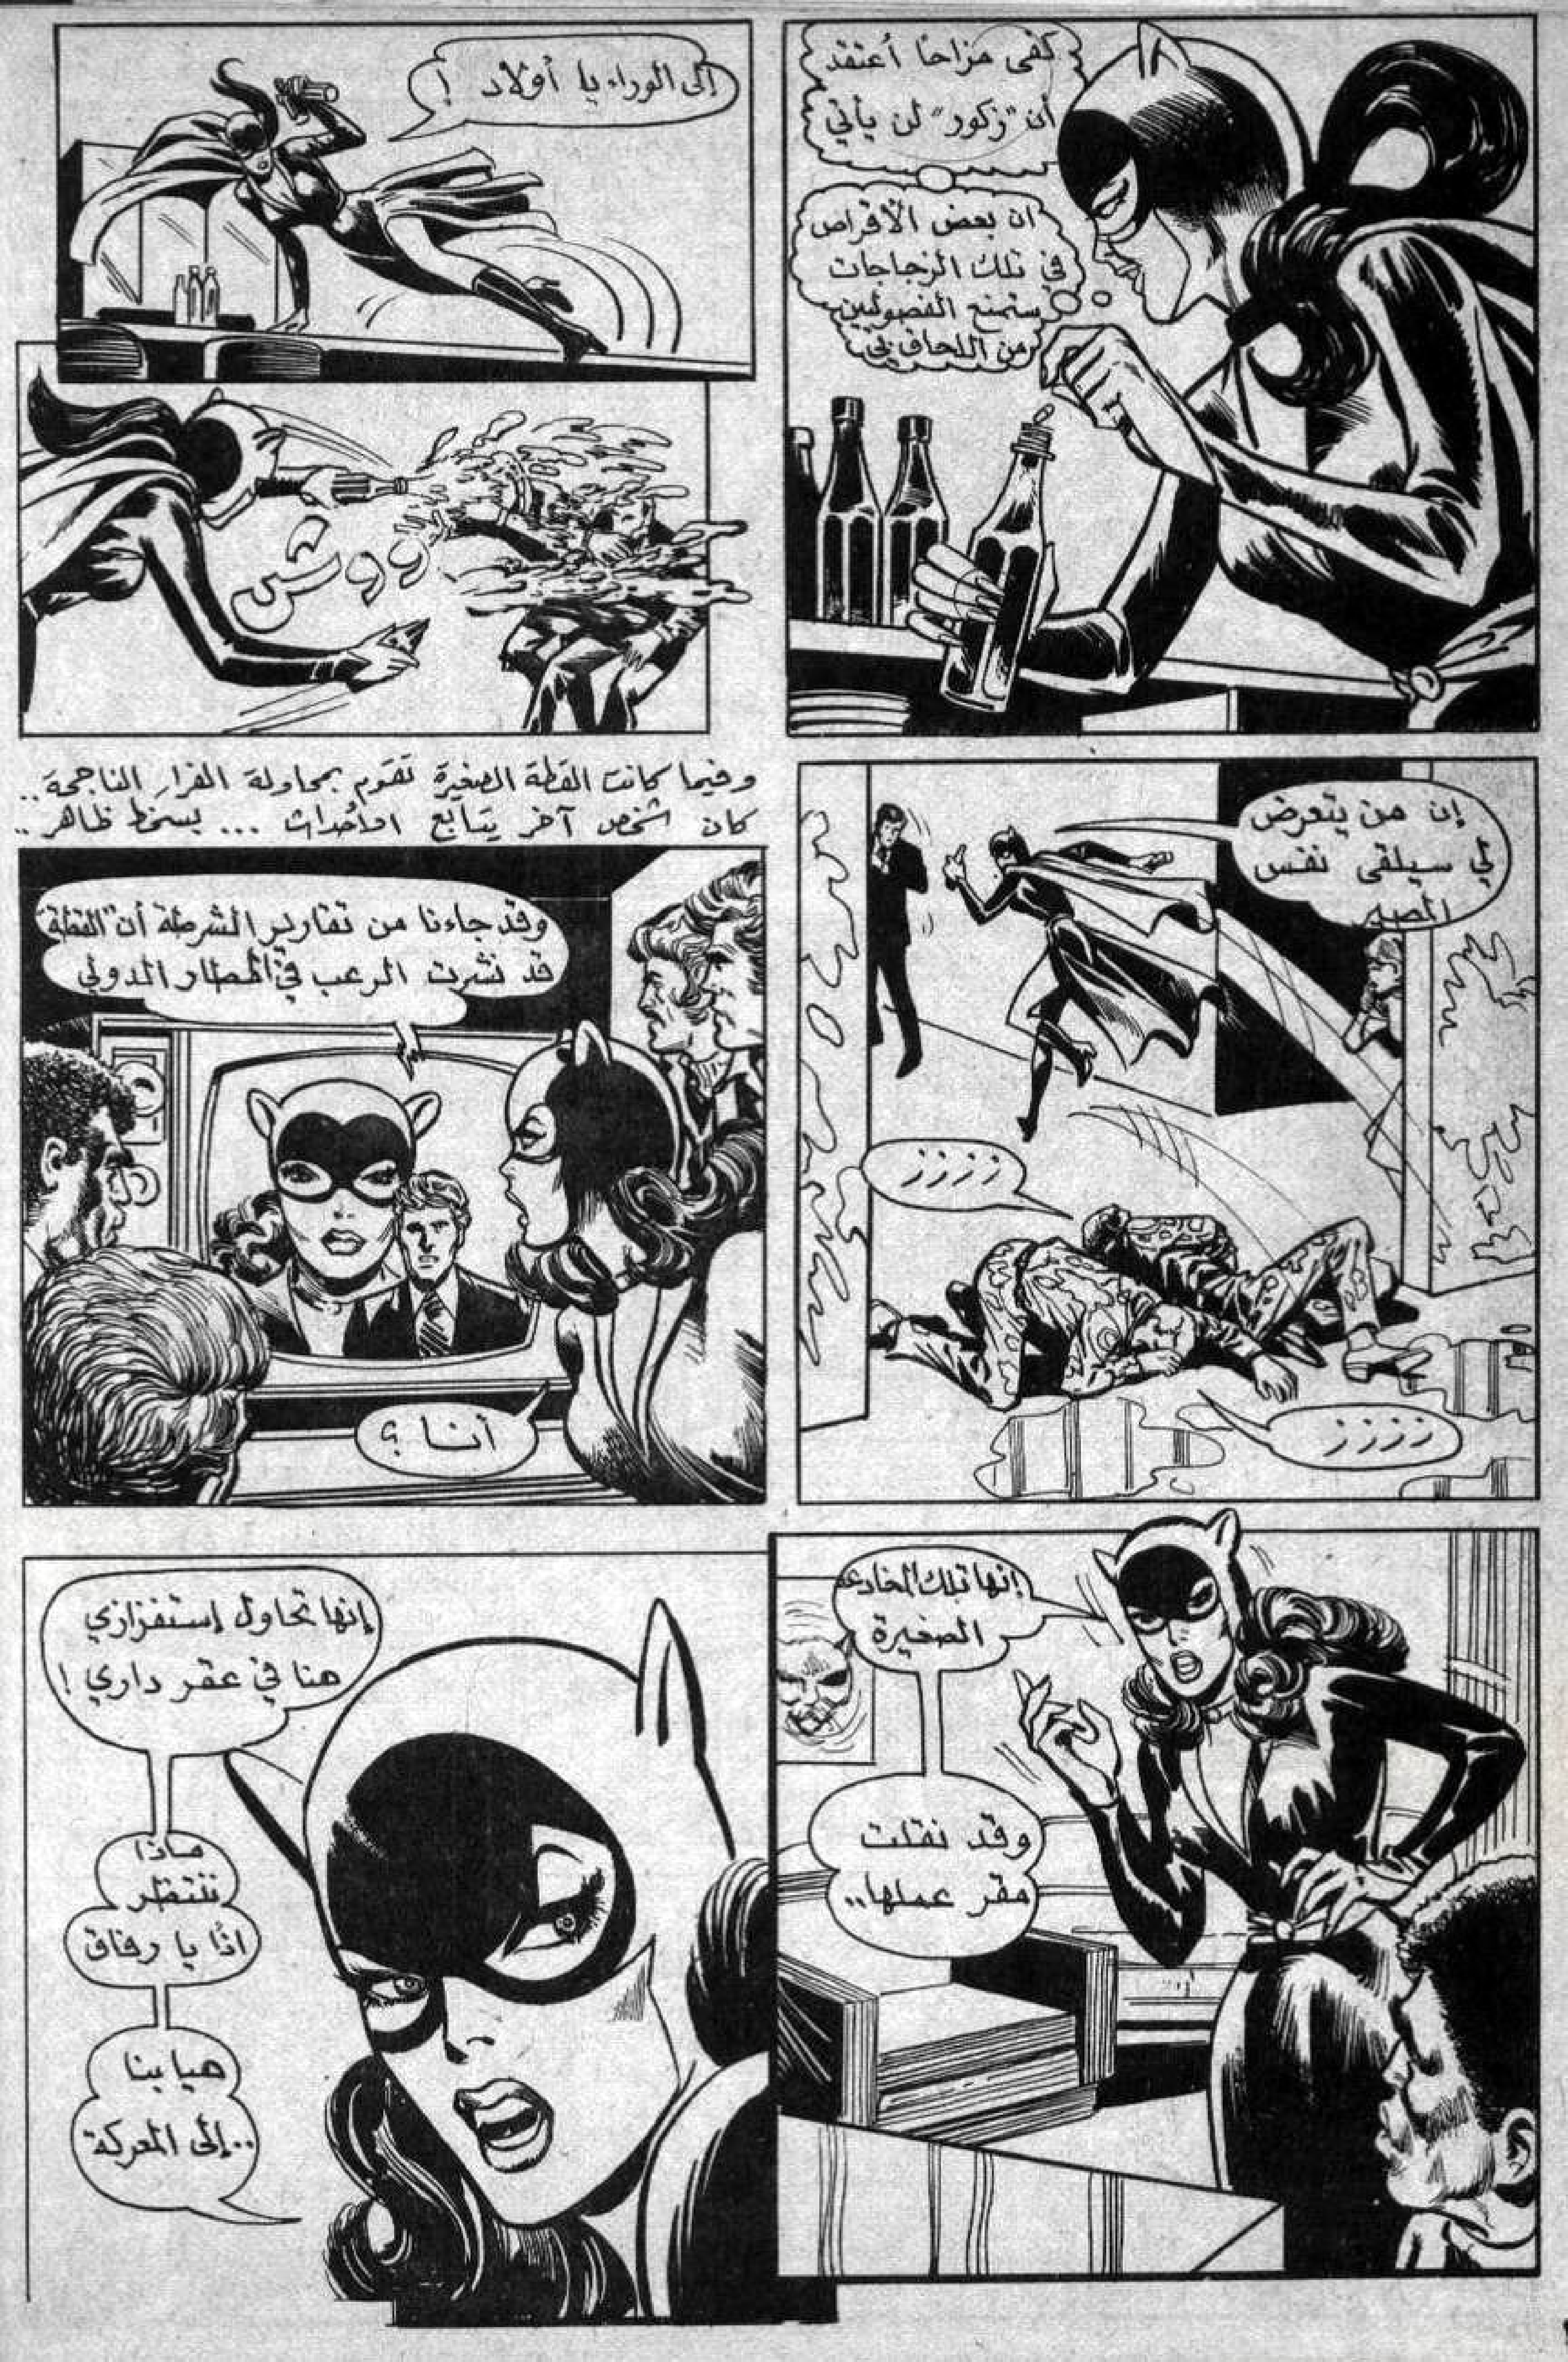 كفى مزاحاً أعتقد
أن "زكور" لن يأتي
ان بعض الأقراص
في تلك الزجاجات
ستمنع الفضوليين
من اللحاق بي
إلى الوراء يا أولاد !
ووش
إن من يتعرض
لي سيلقى نفس
المصير
زززز
زززز
وفيما كانت القطة الصغيرة تقوم بمحاولة الفرار الناجحة..
كان شخص آخر يتابع الأحداث ... بسخط ظاهر..
وقد جاءنا من تقارير الشرطة أن "القطة"
قد نشرت الرعب في المطار الدولي
أنا ؟
إنها تلك المخادعة
الصغيرة
وقد نقلت
مقر عملها..
إنها تحاول إستفزازي
هنا في عقر داري !
ماذا
ننتظر
اذًا يا رفاق
هيا بنا
..إلى المعركة